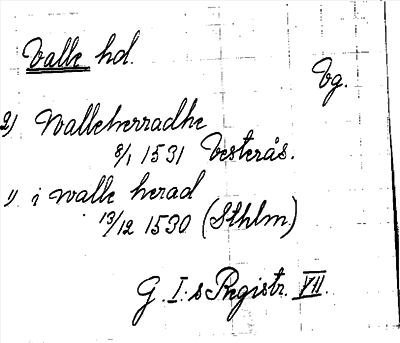 Valle hd.
Vg.
2) Walleherradhe
8/1 1531 Vesterås.
1) i walle herad
13/12 1530 (Sthlm)
G. I:s Registr. VII.